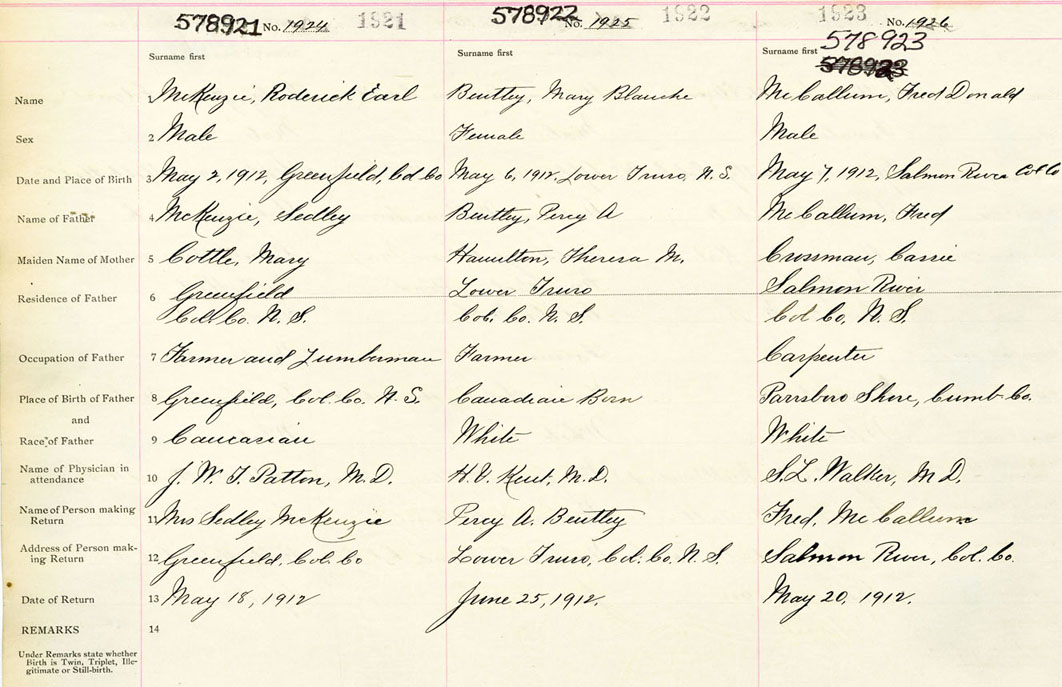 578921 No. 1924 1921 578922 No. 1925 1922 1923 No. 1926
578923
Surname first Surname first Surname first 578923
Name 1 McKenzie, Roderick Earl Bentley, Mary Blanche McCallum, Fred Donald
Sex 2 Male Female Male
Date and Place of Birth 3 May 2, 1912, Greenfield, Col Co May 6, 1912, Lower Truro, N.S. May 7, 1912, Salmon River Col Co
Name of Father 4 McKenzie, Sedley Bentley, Percy A McCallum, Fred
Maiden Name of Mother 5 Cottle, Mary Hamilton, Theresa M. Crossman, Cassie
Residence of Father 6 Greenfield Lower Truro Salmon River
Col. Co. N.S. Col. Co. N.S. Col Co, N.S.
Occupation of Father 7 Farmer and Lumberman Farmer Carpenter
Place of Birth of Father 8 Greenfield, Col. Co. N.S. Canadian Born Parrsboro Shore, Cumb. Co.
and
Race of Father 9 Caucasian White White
Name of Physician in attendance 10 J. W. T. Patton, M.D. H.V. Kent, M.D. S.L. Walker, M.D.
Name of Person making Return 11 Mrs Sedley McKenzie Percy A. Bentley Fred, McCallum
Address of Person mak-ing Return 12 Greenfield, Col. Co Lower Truro, Col. Co. N.S. Salmon River, Col. Co.
Date of Return 13 May 18, 1912 June 25, 1912. May 20, 1912.
REMARKS 14
Under Remarks state whether
Birth is Twin, Triplet, Ille-
gitimate or Still-birth.